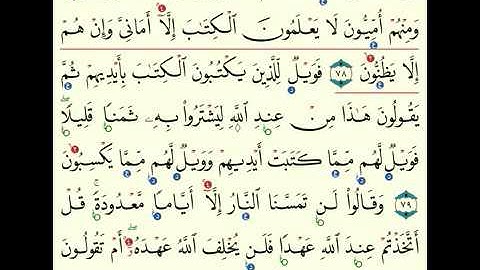 وَمِنْهُمْ أُمِّيُّونَ لَا يَعْلَمُونَ ٱلْكِتَٰبَ إِلَّآ أَمَانِىَّ وَإِنْ هُمْ
إِلَّا يَظُنُّونَ ٧٨ فَوَيْلٌ لِّلَّذِينَ يَكْتُبُونَ ٱلْكِتَٰبَ بِأَيْدِيهِمْ ثُمَّ
يَقُولُونَ هَٰذَا مِنْ عِندِ ٱللَّهِ لِيَشْتَرُوا۟ بِهِۦ ثَمَنًا قَلِيلًا ۖ
فَوَيْلٌ لَّهُم مِّمَّا كَتَبَتْ أَيْدِيهِمْ وَوَيْلٌ لَّهُم مِّمَّا يَكْسِبُونَ
٧٩ وَقَالُوا۟ لَن تَمَسَّنَا ٱلنَّارُ إِلَّآ أَيَّامًا مَّعْدُودَةً ۚ قُلْ
أَتَّخَذْتُمْ عِندَ ٱللَّهِ عَهْدًا فَلَن يُخْلِفَ ٱللَّهُ عَهْدَهُۥٓ ۖ أَمْ تَقُولُونَ